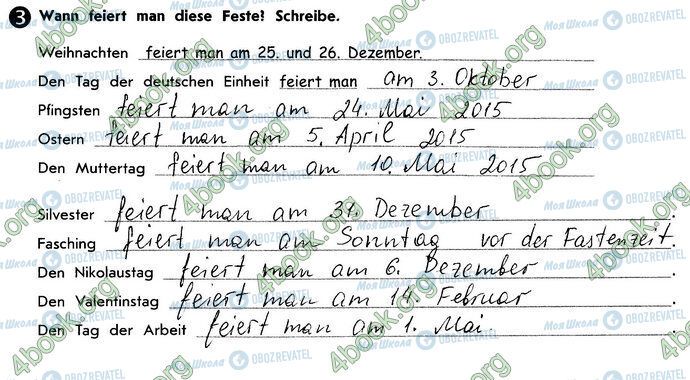 3 Wann feiert man diese Feste? Schreibe.
Weihnachten feiert man am 25. und 26. Dezember.
Den Tag der deutschen Einheit feiert man am 3. Oktober
Pfingsten feiert man am 24. Mai 2015
Ostern feiert man am 5. April 2015
Den Muttertag feiert man am 10. Mai 2015
Silvester feiert man am 31. Dezember.
Fasching feiert man am Sonntag vor der Fastenzeit.
Den Nikolaustag feiert man am 6. Dezember.
Den Valentinstag feiert man am 14. Februar.
Den Tag der Arbeit feiert man am 1. Mai.